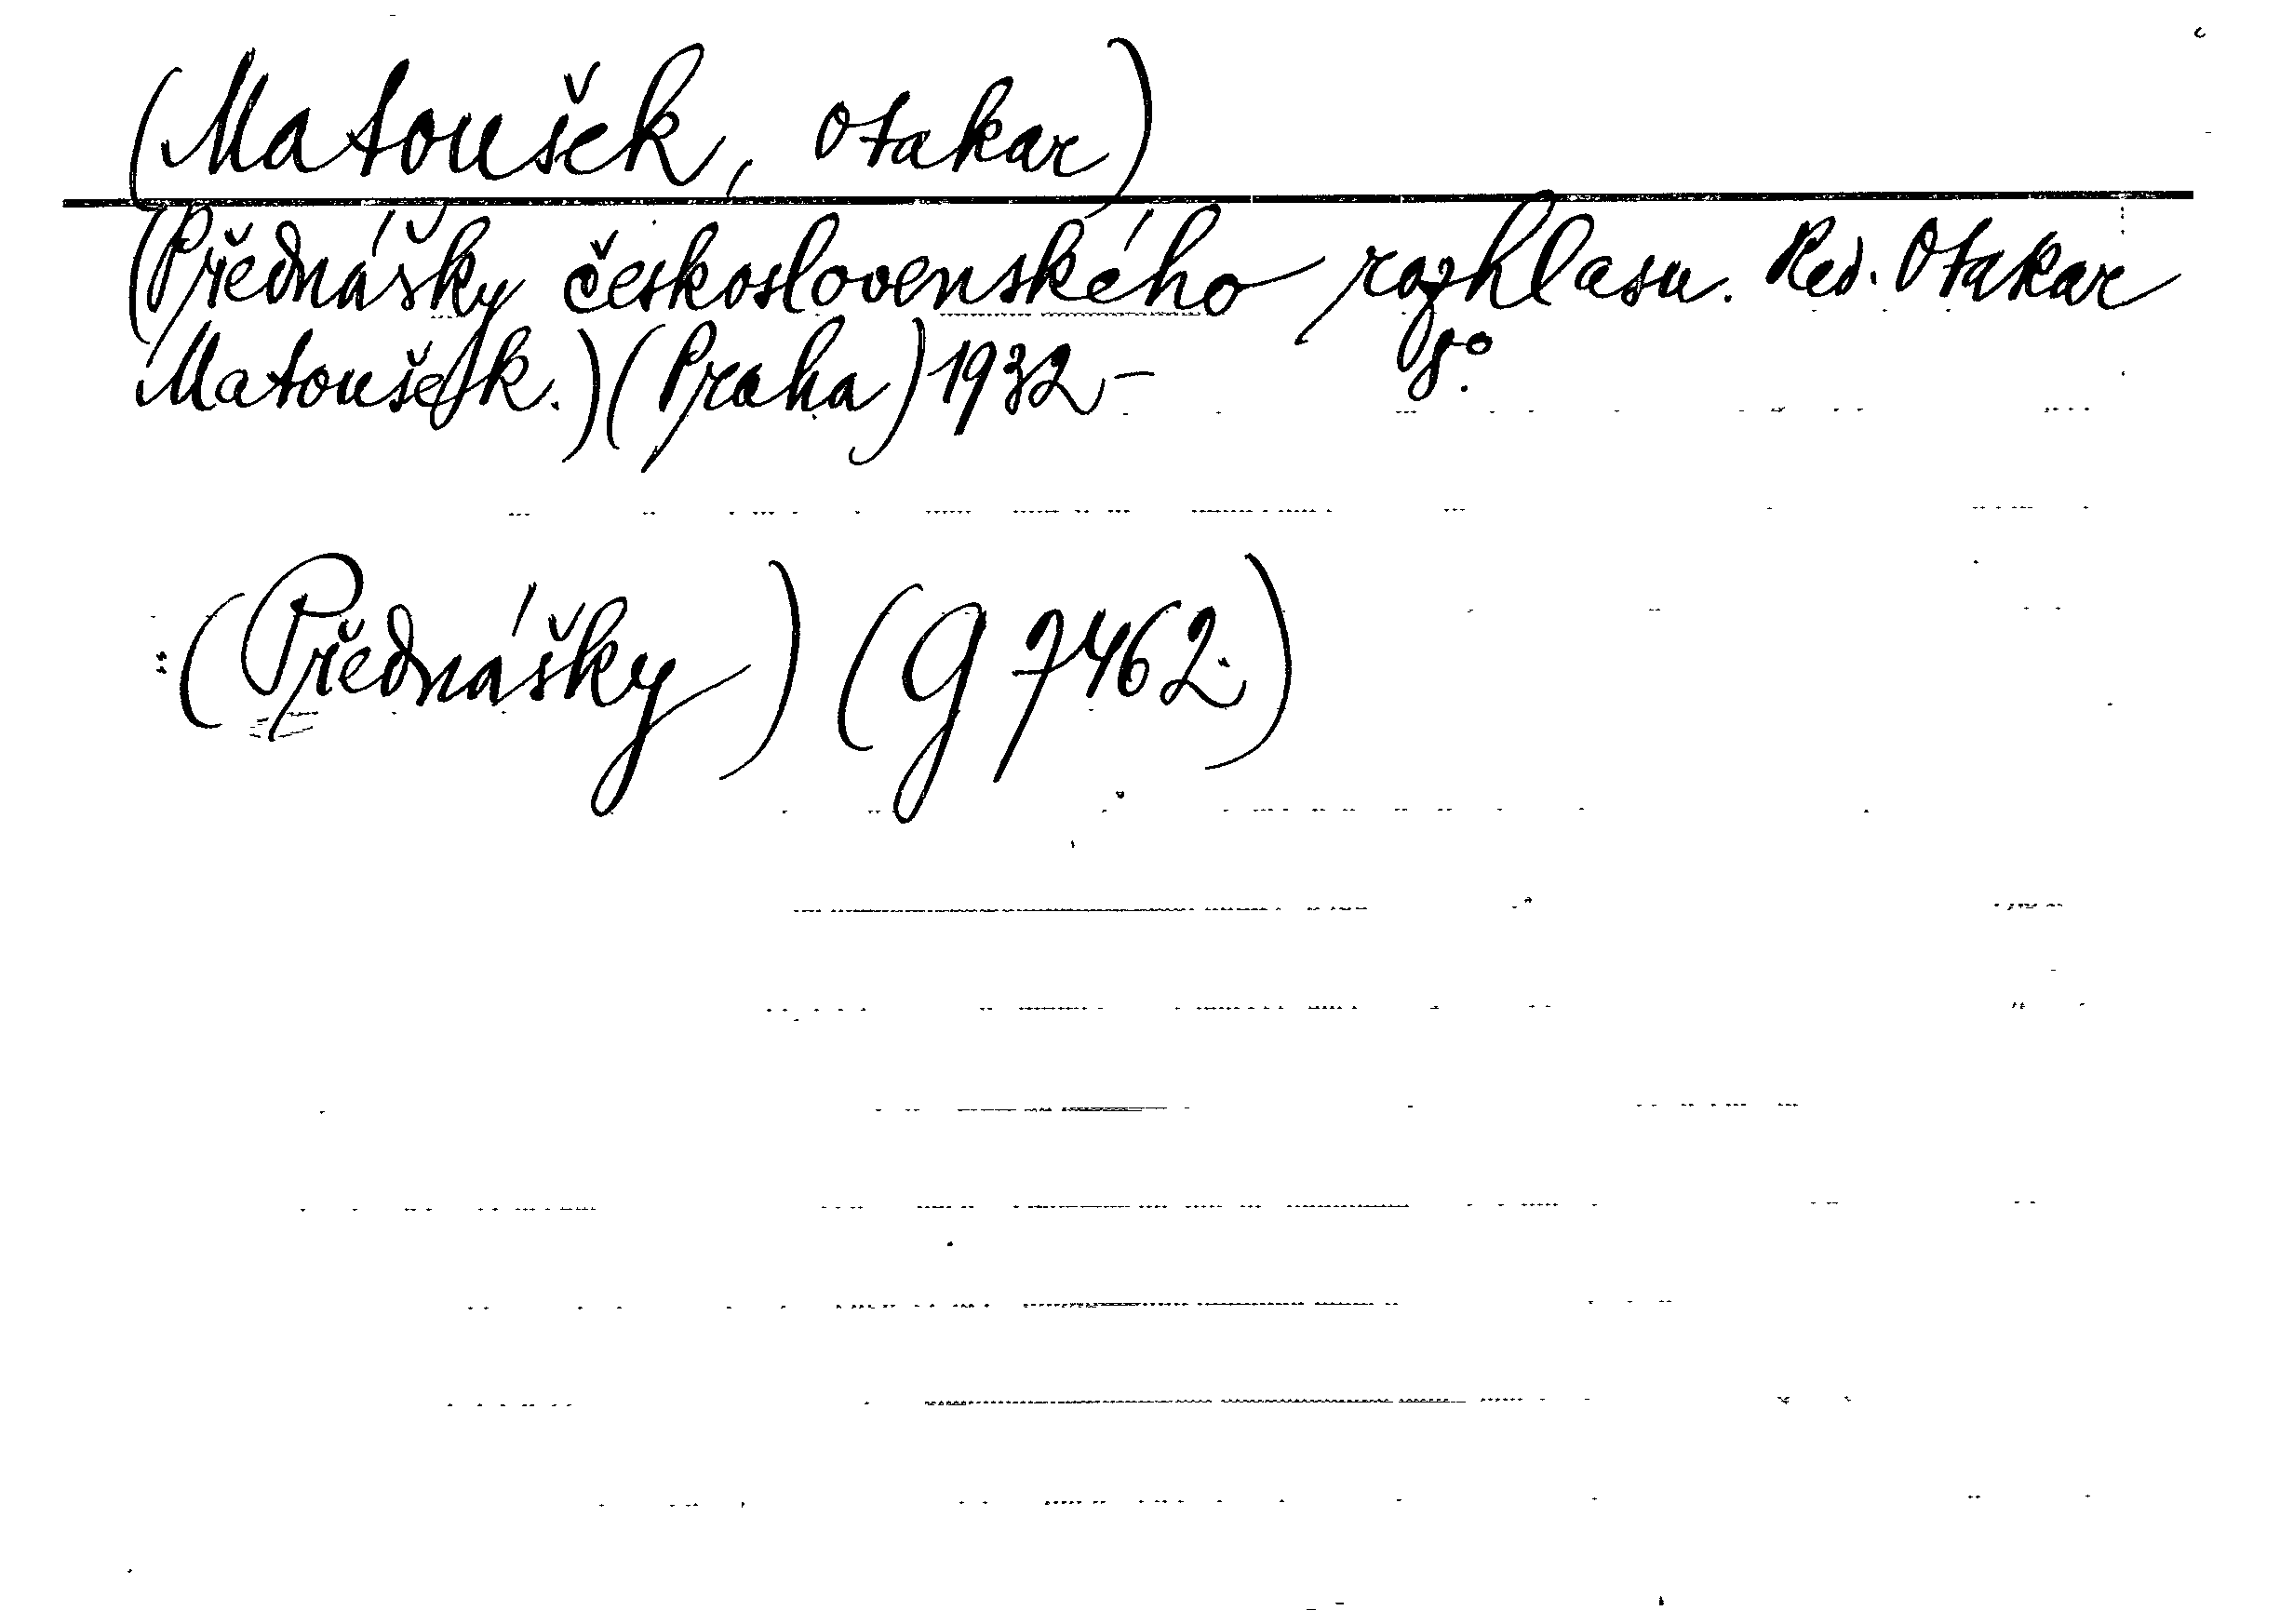 (Matoušek, Otakar)
(Přednášky československého rozhlasu. Red. Otakar
Matoušek.) (Praha) 1932– 8°.
: (Přednášky) (G 7462.)